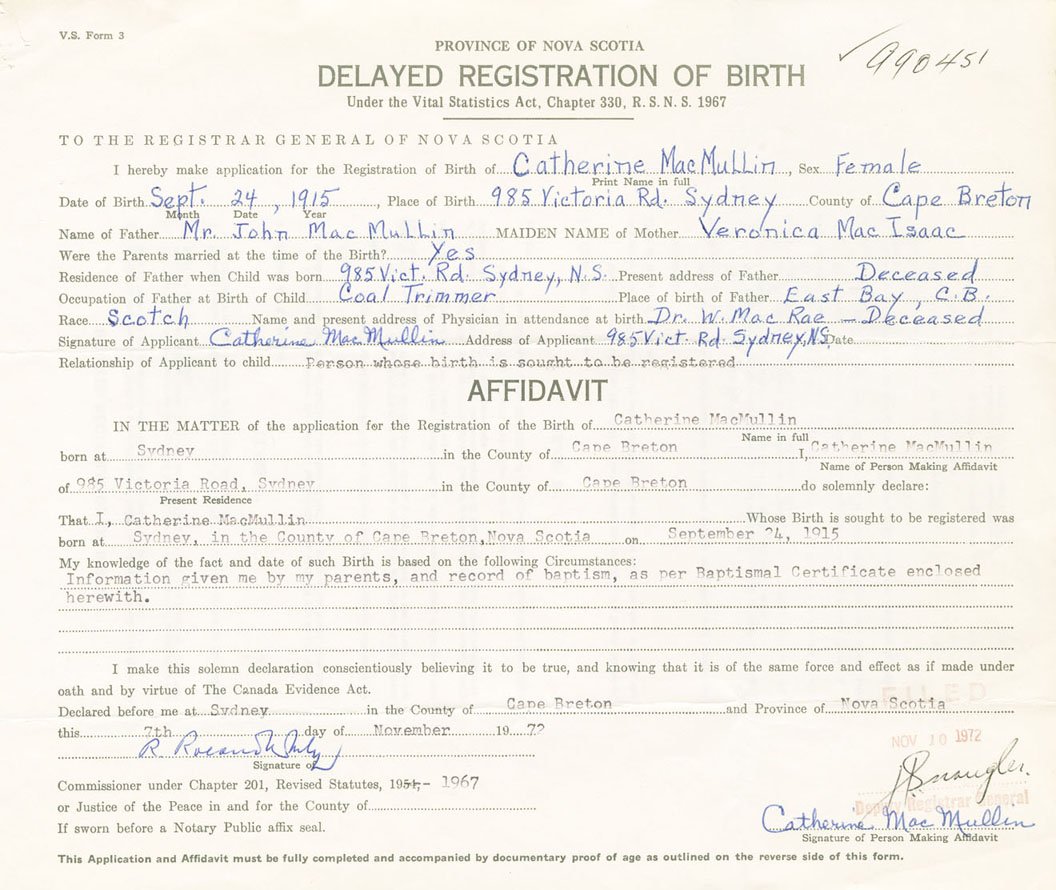 V.S. Form 3
PROVINCE OF NOVA SCOTIA
✓ 990451
DELAYED REGISTRATION OF BIRTH
Under the Vital Statistics Act, Chapter 330, R.S.N.S. 1967
TO THE REGISTRAR GENERAL OF NOVA SCOTIA
I hereby make application for the Registration of Birth of Catherine MacMullin, Sex Female
Print Name in full
Date of Birth Sept. 24, 1915, Place of Birth 985 Victoria Rd. Sydney County of Cape Breton
Month Date Year
Name of Father Mr. John Mac Mullin MAIDEN NAME of Mother Veronica Mac Isaac
Were the Parents married at the time of the Birth? Yes
Residence of Father when Child was born 985 Vict. Rd. Sydney, N.S. Present address of Father Deceased
Occupation of Father at Birth of Child Coal Trimmer Place of birth of Father East Bay, C.B.
Race Scotch Name and present address of Physician in attendance at birth Dr. W. Mac Rae – Deceased
Signature of Applicant Catherine MacMullin Address of Applicant 985 Vict. Rd. Sydney, N.S. Date
Relationship of Applicant to child Person whose birth is sought to be registered
AFFIDAVIT
IN THE MATTER of the application for the Registration of the Birth of Catherine MacMullin
Name in full
born at Sydney in the County of Cape Breton I, Catherine MacMullin
Name of Person Making Affidavit
of 985 Victoria Road, Sydney in the County of Cape Breton do solemnly declare:
Present Residence
That I, Catherine MacMullin Whose Birth is sought to be registered was
born at Sydney, in the County of Cape Breton, Nova Scotia on September 24, 1915
My knowledge of the fact and date of such Birth is based on the following Circumstances:
Information given me by my parents, and record of baptism, as per Baptismal Certificate enclosed
herewith.
I make this solemn declaration conscientiously believing it to be true, and knowing that it is of the same force and effect as if made under
oath and by virtue of The Canada Evidence Act.
FILED
Declared before me at Sydney in the County of Cape Breton and Province of Nova Scotia
this 7th day of November 1972
NOV 10 1972
Signature of
Commissioner under Chapter 201, Revised Statutes, 1954,- 1967
or Justice of the Peace in and for the County of
Deputy Registrar General
Catherine Mac Mullin
If sworn before a Notary Public affix seal.
Signature of Person Making Affidavit
This Application and Affidavit must be fully completed and accompanied by documentary proof of age as outlined on the reverse side of this form.